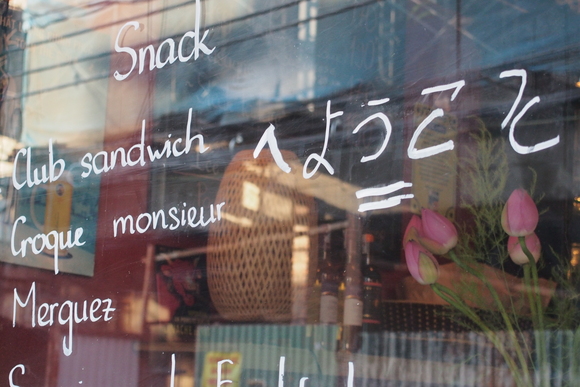 Snack
へようこそ
Club sandwich
Croque monsieur
Merguez